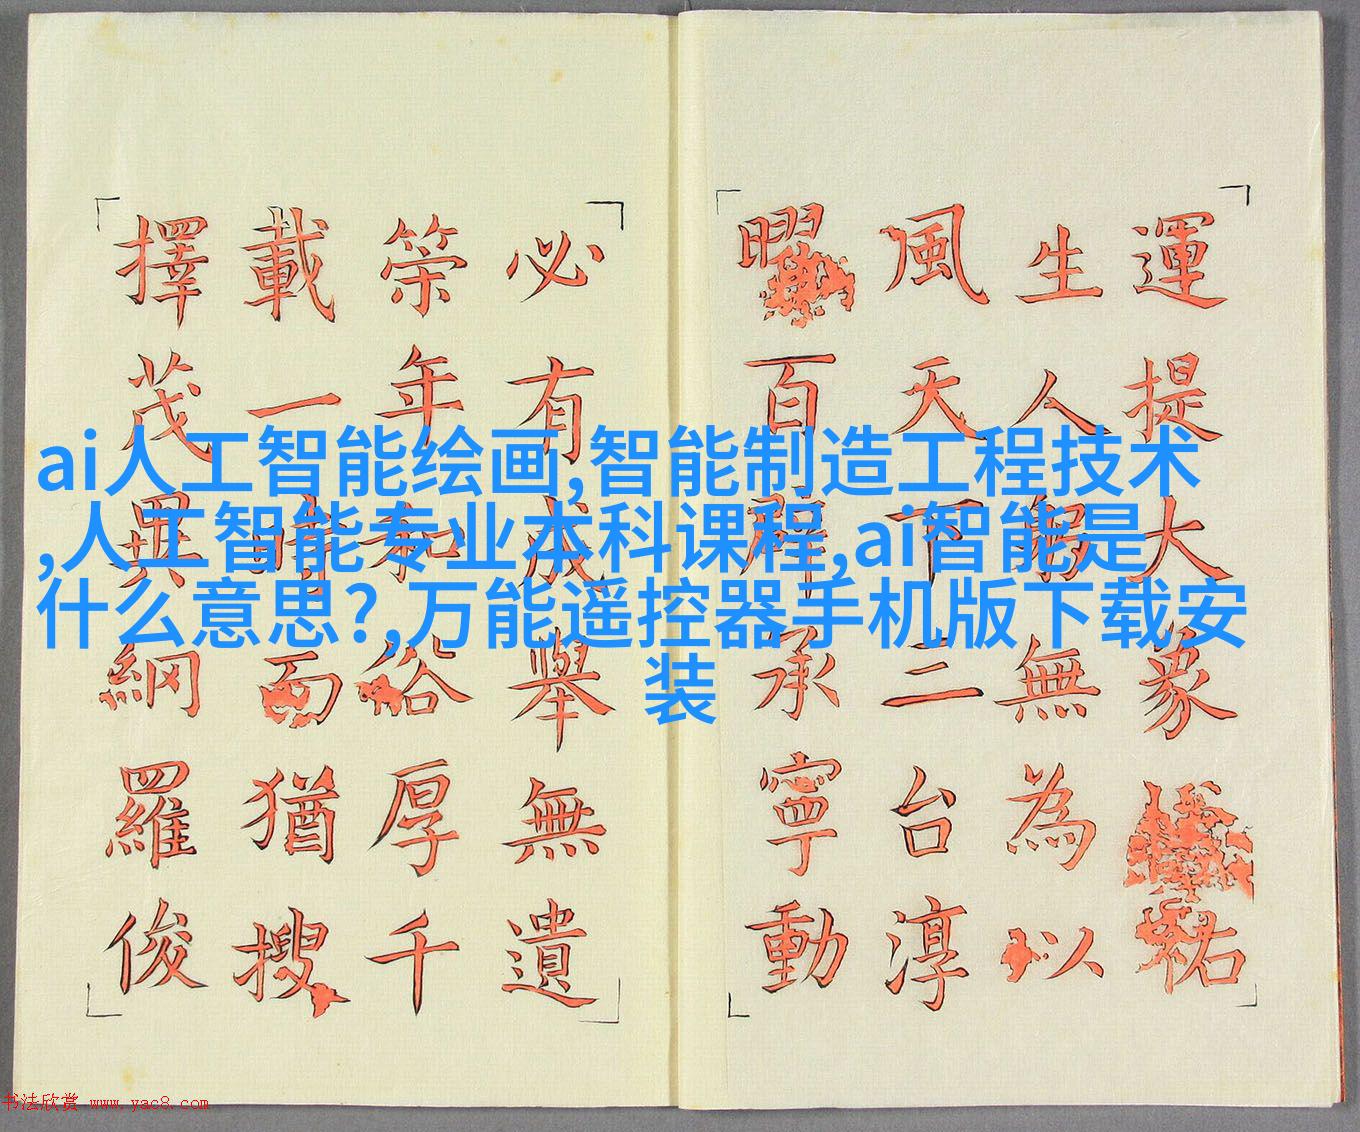 ai人工智能绘画,智能制造工程技术
,人工智能专业本科课程,ai智能是
什么意思?,万能遥控器手机版下载安
装
運提大象祐
生人躬無為以
風天下三台淳
曜百辟承寧動
必有成舉無遺
筞年和俗厚千
載一時而猶搜
擇茂異網羅俊
书法欣赏 www.yac8.com